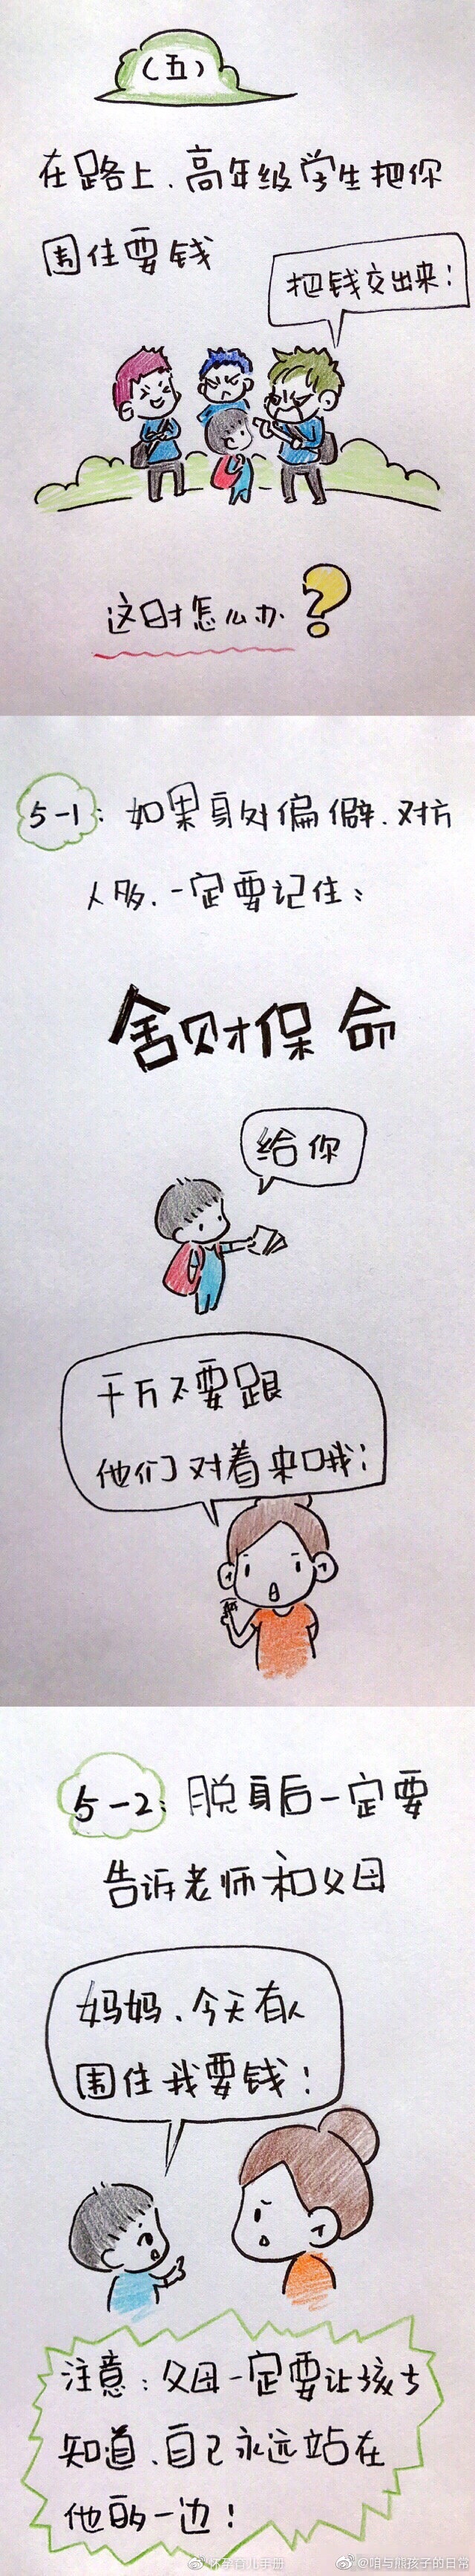 （五）
在路上、高年级学生把你
围住要钱
把钱交出来！
这时怎么办？
5-1：如果身处偏僻、对方
人多、一定要记住：
舍财保命
给你
千万不要跟
他们对着来哦！
5-2：脱身后一定要
告诉老师和父母
妈妈、今天有人
围住我要钱！
注意：父母一定要让孩子
知道、自己永远站在
他的一边！
怀孕育儿手册
@咱与熊孩子的日常